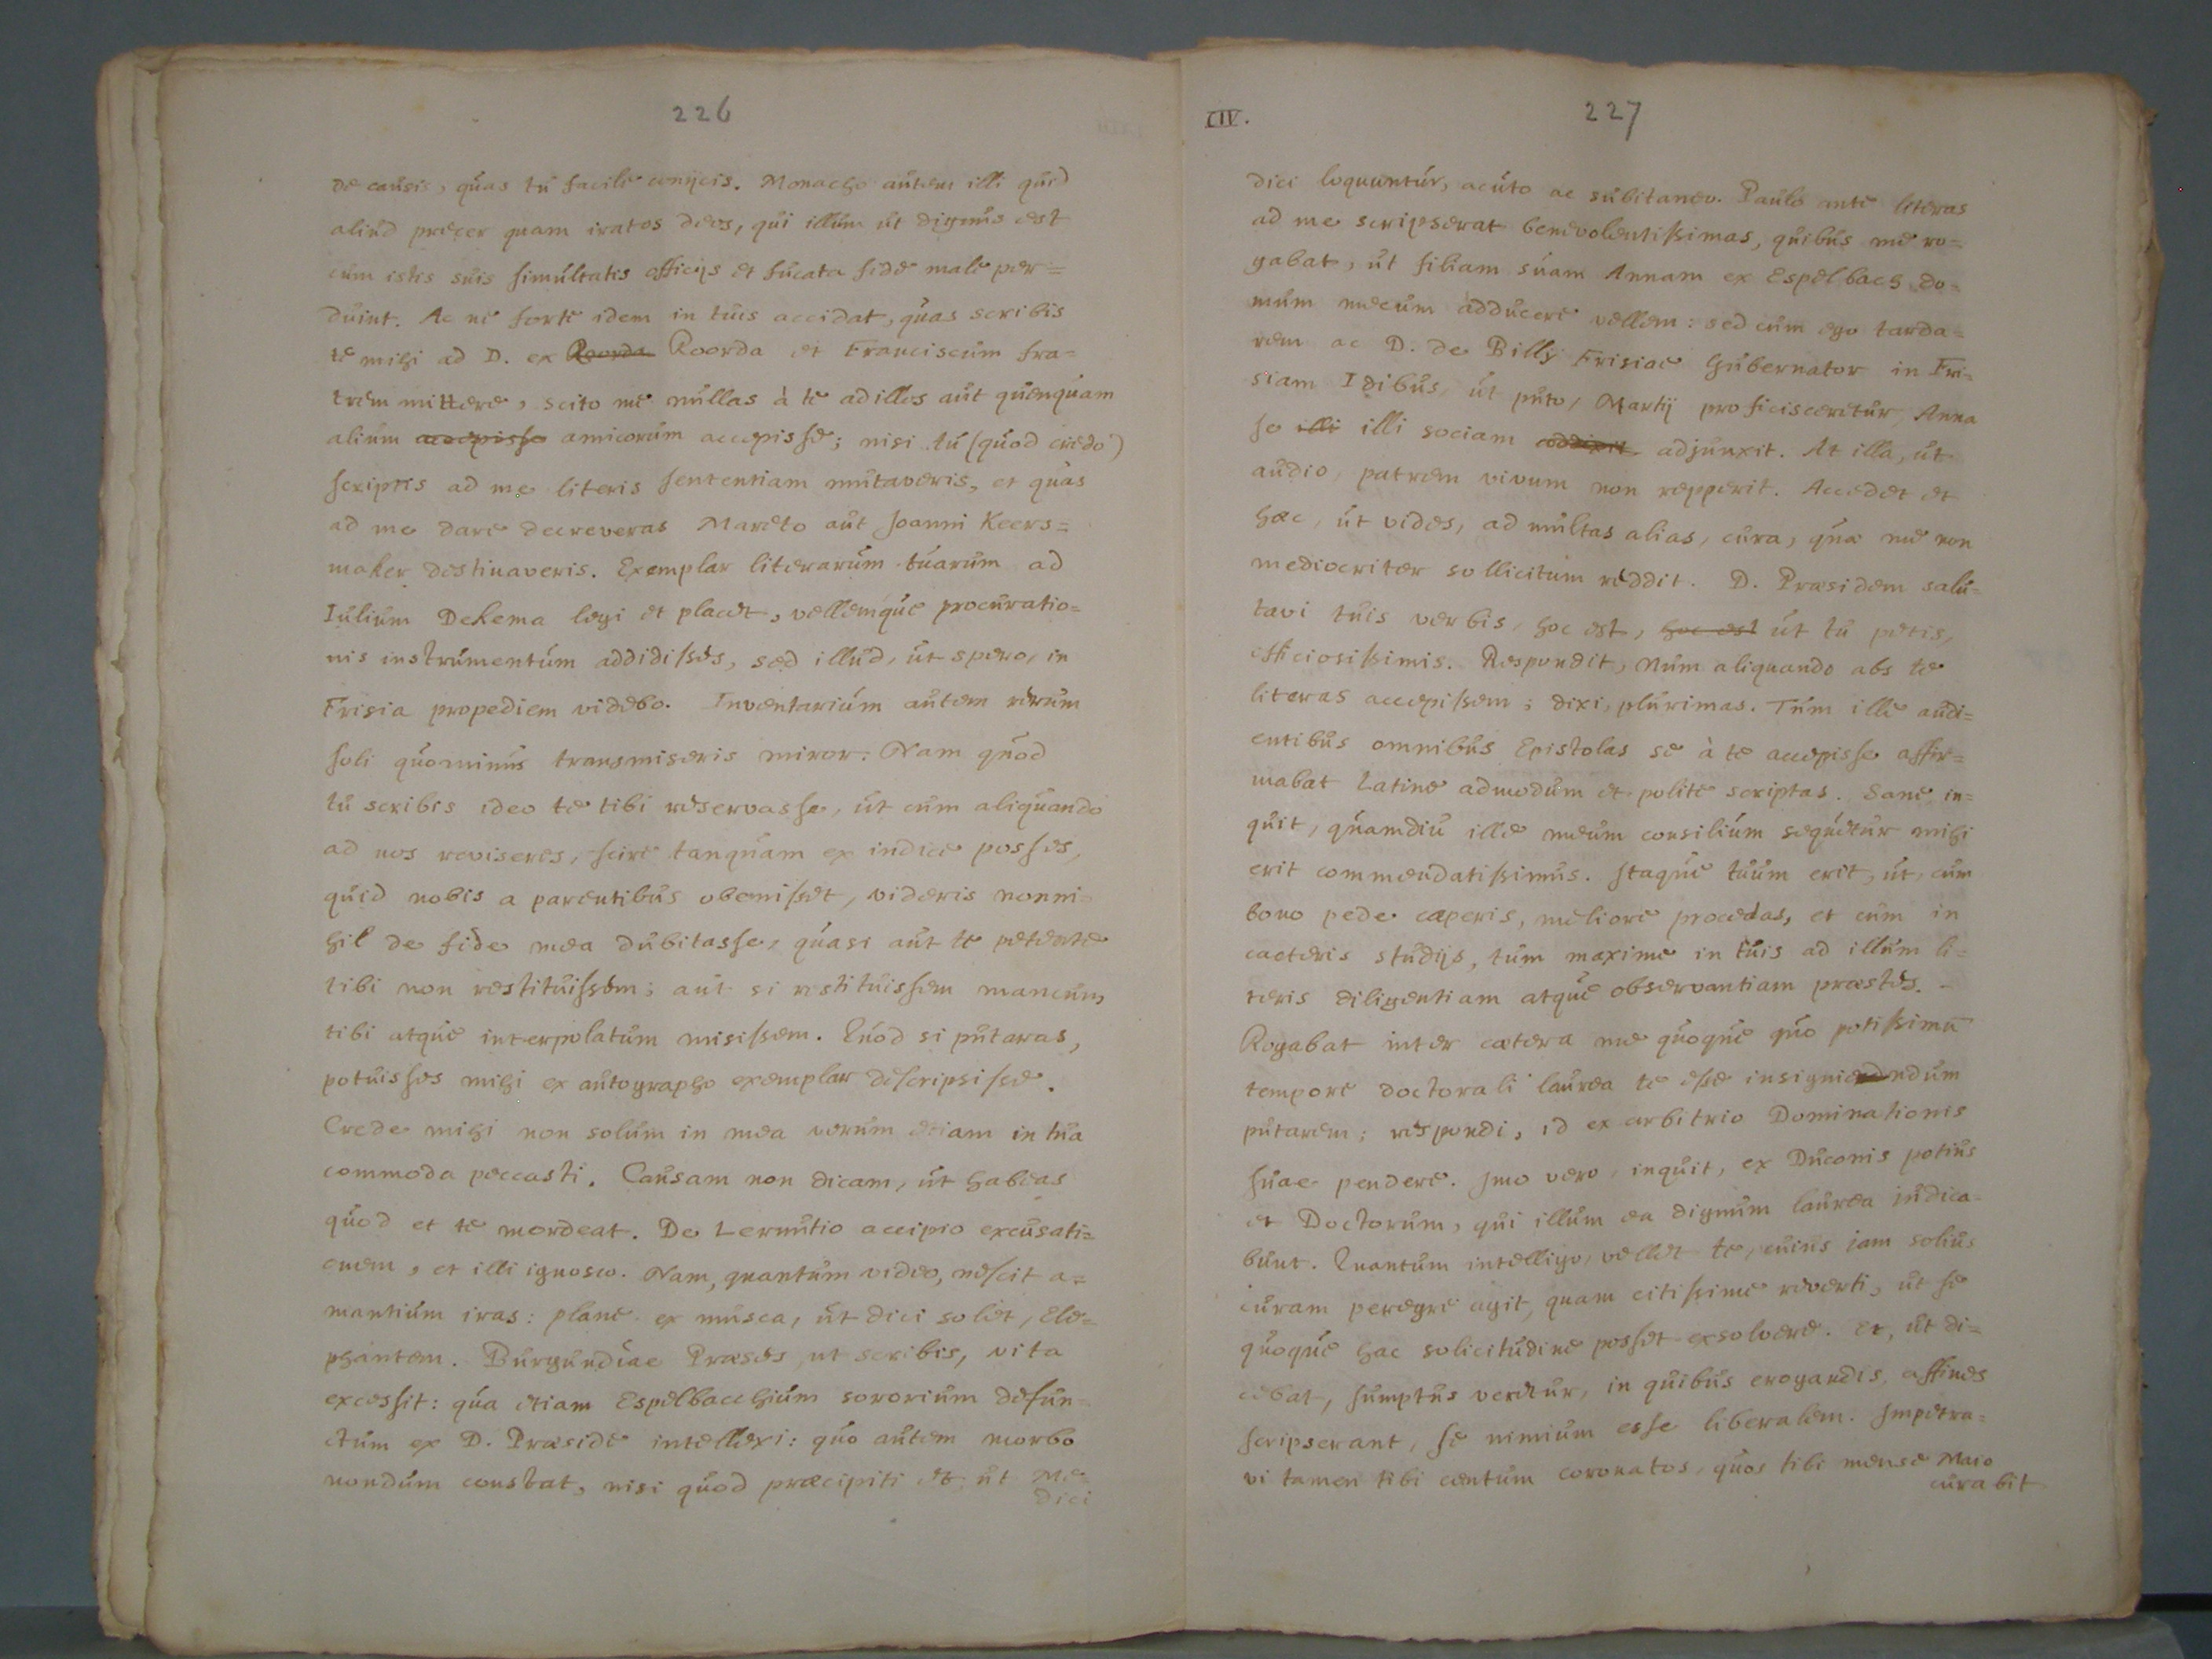 226
de causis, quas tu facile conijcis. Monacho autem illi quid
aliud precer quam iratos deos, qui illum ut dignus est
cum istis suis simultatis officijs et fucata fide male per=
duint. Ac ne forte idem in tuis accidat, quas scribis
te mihi ad D. ex Roorda Roorda et Franciscum fra=
trem mittere, scito me nullas à te ad illos aut quenquam
alium accepisse amicorum accepisse; nisi tu (quod credo)
scriptis ad me literis sententiam mutaveris, et quas
ad me dare decreveras Mareto aut Joanni Keers=
maker destinaveris. Exemplar literarum tuarum ad
Iulium Dekema legi et placet, vellemque procuratio=
nis instrumentum addidisses, sed illud, ut spero, in
Frisia propediem videbo. Inventarium autem rerum
soli quominus transmiseris miror: Nam quod
tu scribis ideo te tibi reservasse, ut cum aliquando
ad nos reviseres, scire tanquam ex indice posses,
quid nobis a parentibus obvenisset, videris nonni=
hil de fide mea dubitasse, quasi aut te petente
tibi non restituissem; aut si restituissem mancum,
tibi atque interpolatum misissem. Quod si putaras,
potuisses mihi ex autographo exemplar descripsisse.
Crede mihi non solum in mea verum etiam in tua
commoda peccasti. Causam non dicam, ut habeas
quod et te mordeat. De Lernutio accipio excusati=
onem, et illi ignosco. Nam, quantum video, nescit a=
mantium iras: plane ex musca, ut dici solet, Ele=
phantem. Burgundiae Praeses, ut scribis, vita
excessit: qua etiam Espelbacchium sororium defun=
ctum ex D. Praeside intellexi: quo autem morbo
nondum constat, nisi quod praecipiti et, ut Me=
dici
CIV.
227
dici loquuntur, acuto ac subitaneo. Paulo ante literas
ad me scripserat benevolentissimas, quibus me ro=
gabat, ut filiam suam Annam ex Espelbach do=
mum mecum adducere vellem: sed cum ego tarda=
rem ac D. de Billy Frisiae Gubernator in Fri=
siam Idibus, ut puto, Martij proficisceretur, Anna
se illi illi sociam adjunxit. At illa, ut
audio, patrem vivum non repperit. Accedet et
haec, ut vides, ad multas alias, cura, quae me non
mediocriter sollicitum reddit. D. Praesidem salu=
tavi tuis verbis, hoc est, hoc est ut tu petis,
officiosissimis. Respondit, Num aliquando abs te
literas accepissem; dixi, plurimas. Tum ille audi=
entibus omnibus Epistolas se à te accepisse affir=
mabat Latine admodum et polite scriptas. Sane in=
quit, quamdiu ille meum consilium sequetur mihi
erit commendatissimus. Itaque tuum erit, ut, cum
bono pede caeperis, meliore procedas, et cum in
caeteris studijs, tum maxime in tuis ad illum li=
teris diligentiam atque observantiam praestes.
Rogabat inter caetera me quoque quo potissimū
tempore doctorali laurea te esse insigniendum
putarem; respondi, id ex arbitrio Dominationis
suae pendere. Imo vero, inquit, ex Duconis potius
et Doctorum, qui illum ea dignum laurea judica=
bunt. Quantum intelligo, vellet te, cuius jam solius
curam peregre agit, quam citissime reverti, ut se
quoque hac solicitudine posset exsolvere. Et, ut di=
cebat, sumptus veretur, in quibus erogandis, affines
scripserant, se nimium esse liberalem. Impetra=
vi tamen tibi centum coronatos, quos tibi mense Maio
curabit